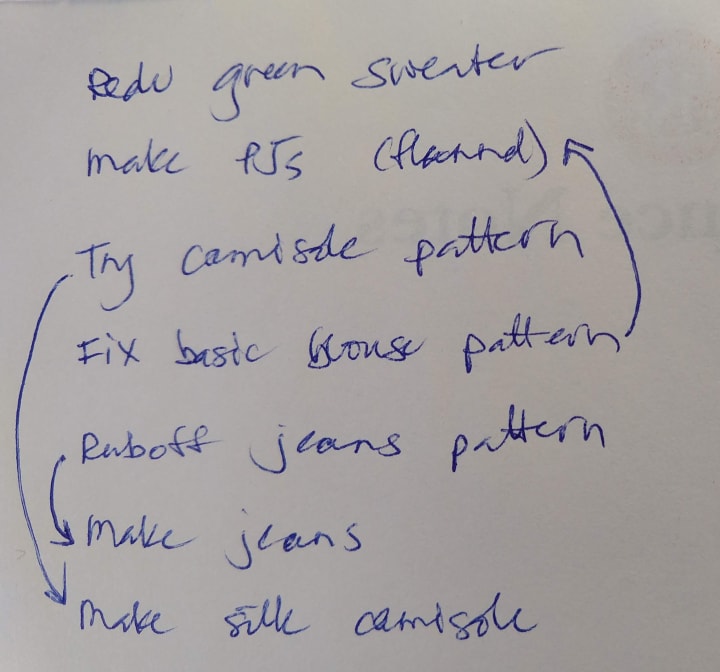 Redo green sweater
Make PJs (flannel)
Try camisole pattern
Fix basic blouse pattern
Ruboff jeans pattern
Make jeans
Make silk camisole